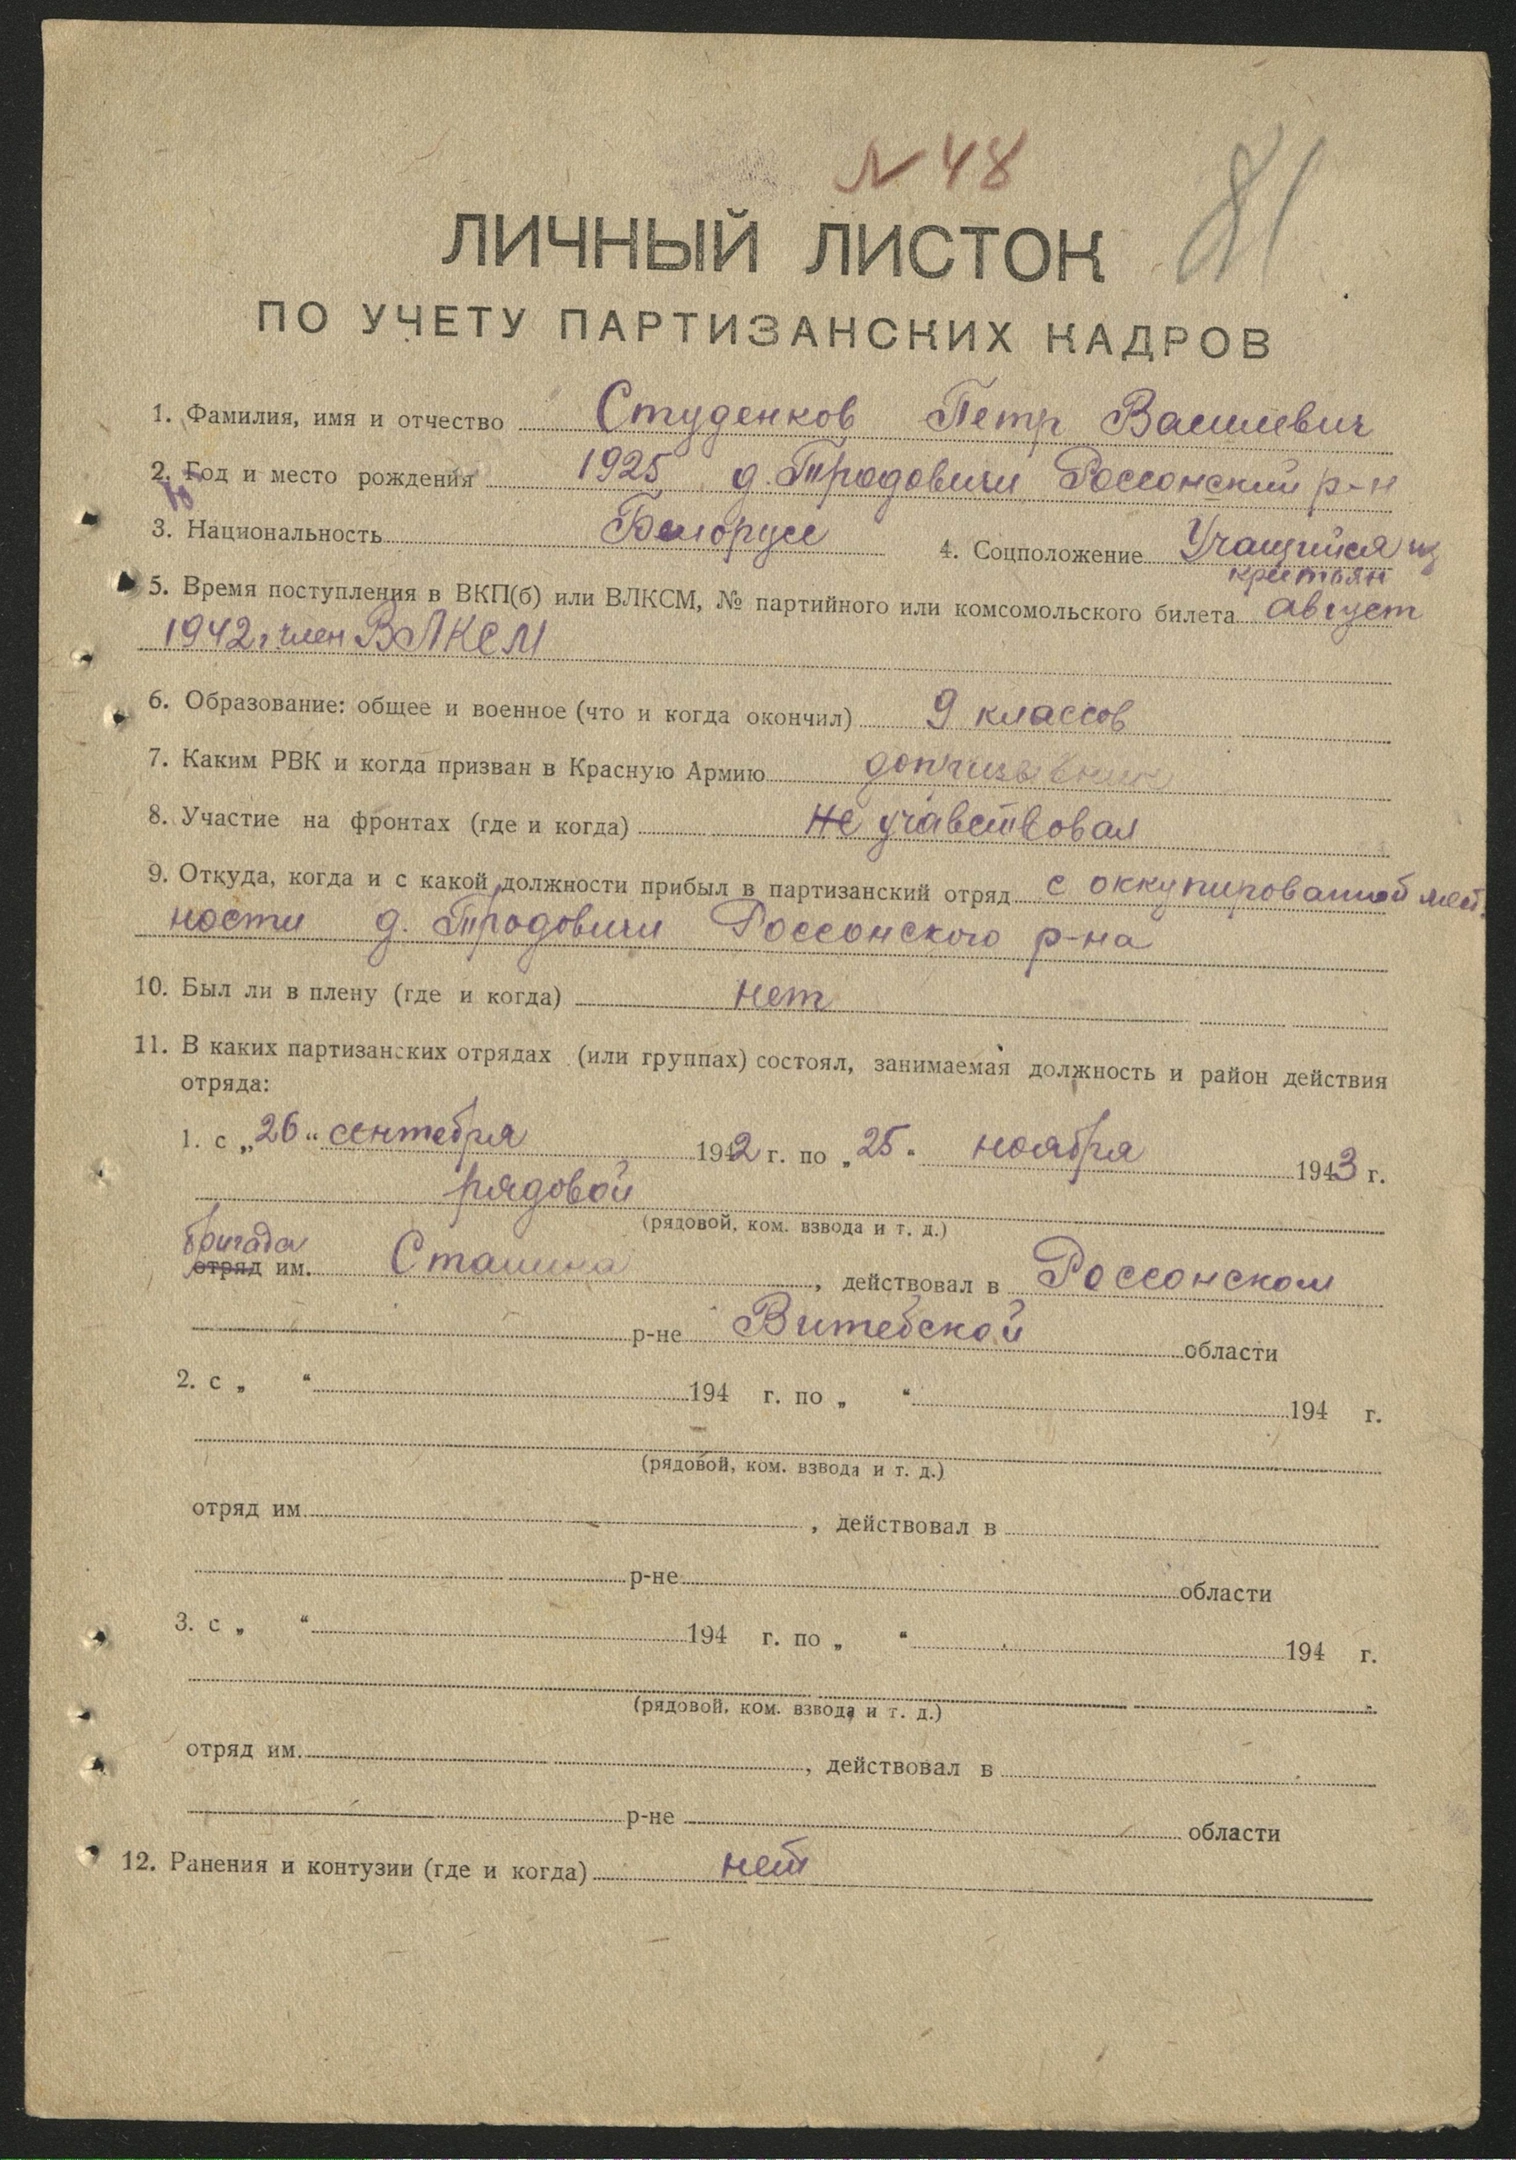 N 48
81
ЛИЧНЫЙ ЛИСТОК
ПО УЧЕТУ ПАРТИЗАНСКИХ КАДРОВ
1. Фамилия, имя и отчество Студенков Петр Василевич
2. Год и место рождения 1925 д. Тродовичи Россонский р-н
3. Национальность Белорусс 4. Соцположение Учащийся из
крестьян
5. Время поступления в ВКП(б) или ВЛКСМ, № партийного или комсомольского билета август
1942 г. член ВЛКСМ
6. Образование: общее и военное (что и когда окончил) 9 классов
7. Каким РВК и когда призван в Красную Армию допризывник
8. Участие на фронтах (где и когда) не учавствовал
9. Откуда, когда и с какой должности прибыл в партизанский отряд с оккупированной мест
ности д. Тродовичи Россонского р-на
10. Был ли в плену (где и когда) нет
11. В каких партизанских отрядах (или группах) состоял, занимаемая должность и район действия
отряда:
1. с „26“ сентября 1942 г. по „25“ ноября 1943 г.
рядовой
(рядовой, ком. взвода и т. д.)
бригада
отряд им. Сталина, действовал в Россонском
р-не Витебской области
2. с „ “ 194 г. по „ “ 194 г.
(рядовой, ком. взвода и т. д.)
отряд им. , действовал в
р-не области
3. с „ “ 194 г. по „ “ 194 г.
(рядовой, ком. взвода и т. д.)
отряд им. , действовал в
р-не области
12. Ранения и контузии (где и когда) нет